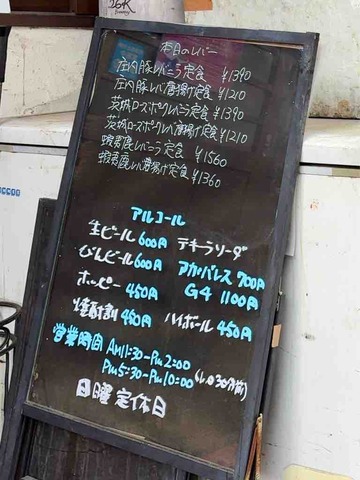 本日のレバー
庄内豚レバニラ定食 ¥1390
庄内豚レバ唐揚げ定食 ¥1210
茨城ローズポークレバニラ定食 ¥1390
茨城ローズポークレバ唐揚げ定食 ¥1210
蝦夷鹿レバニラ定食 ¥1560
蝦夷鹿レバ唐揚げ定食 ¥1360
アルコール
生ビール 600円 テキーラソーダ
びんビール 600円 アガバレス 700円
ホッピー 450円 G4 1100円
焼酎割 450円 ハイボール 450円
営業時間 AM11:30-PM2:00
PM5:30-PM10:00 (L.O 30分前)
日曜定休日